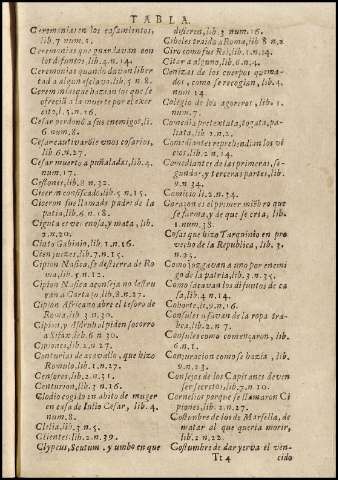 TABLA.
Ceremonias en los casamientos,
lib.7 num.2.
Ceremonias que guardavan con
los difuntos, lib.4.n.14.
Ceremonias quando davan liber
tad a algun esclavo, lib.5 n.8.
Ceremonias que hazian los que se
ofrecia a la muerte por el exer
cito, l.5.n.16.
Cesar perdonò a sus enemigos, li.
6 num.8.
Cesar cautivaròle unos cosarios,
lib.6.n.27.
Cesar muere a puñaladas, lib.4.
num.17.
Cestones, lib.8 n.32.
Ciceron consiscado, lib.5 n.15.
Ciceron fue llamado padre de la
patria, lib.6 n.18.
Cigueta es venenosa, y mata, lib.
2.n.20.
Ciato Gabinio, lib.1.n.16.
Cien juizes, lib.7.n.15.
Cipion Nasica, se destierra de Ro
ma, lib.5 n.12.
Cipion Nasica aconseja no destru
yan a Cartago, lib.8.n.27.
Cipion Africano abre el tesoro de
Roma, lib.3 n.30.
Cipion, y Asdrubal piden socorro
a Sifax, lib.6 n.30.
Cipiones, lib.2 n.27.
Centurias de acavallo, que hizo
Romulo, lib.1.n.27.
Censores, lib.2.n.31.
Centurion, lib.3 n.16.
Clodio cogido en abito de muger
en casa de Iulio Cesar, lib.4.
num.8.
Clelia, lib.3.n.5.
Clientes, lib.2.n.39.
Clypeus, Scutum, y umbo en que
difieren, lib.3 num.16.
Cibeles traida a Roma, lib 8 n.2
Ciro como fue Rei, lib.1.n.14.
Citar a alguno, lib.6.n.4.
Cenizas de los cuerpos quema-
dos, como se recogian, lib.4.
num 14
Colegio de los agoreros, lib.1.
num.7.
Comedia pretextata, togata, pa-
liata, lib 2.n.2.
Comediantes reprehendian los vi
cios, lib.2 n.14.
Comediantes de las primeras, se-
gundas, y terceras partes, lib.
9.n.34.
Comicio li.2.n.34.
Coraçon es el primer miẽbro que
se forma, y de que se cria, lib.
1.num.38.
Cosas que hizo Tarquinio en pro
vecho de la Republica, lib.3.
n.25.
Como juzgavan a uno por enemi
go de la patria, lib.3.n.35.
Como sacavan los difuntos de ca
sa, lib.4.n.14.
Cohorte, li.9.n.16.
Consules usavan de la ropa tra-
bea, lib.2.n.7.
Consules como començaron, lib.
6.n.1.
Conjuracion como se hazia, lib.
9.n.23.
Consejos de los Capitanes deven
ser secretos, lib.7.n 10.
Cornelios porque se llamaron Ci
piones, lib.2.n.27.
Costumbre de los de Marsella, de
matar al que queria morir,
lib.2.n.22.
Costumbre de dar yerva el ven-
Tt 4 cido